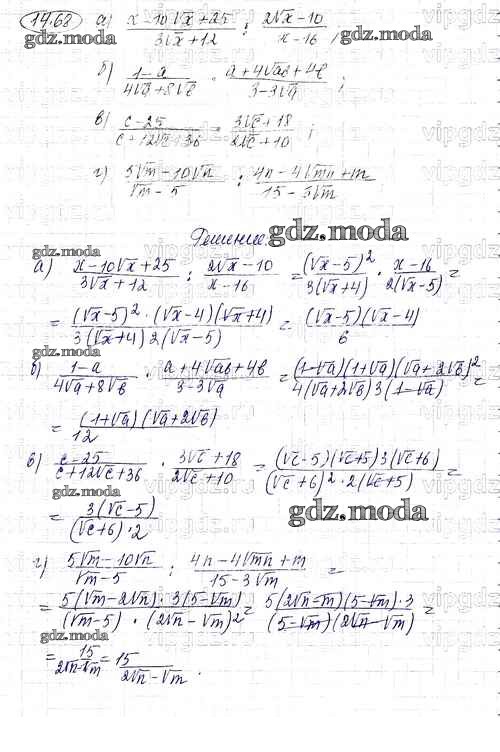 14.62
gdz.moda
а) (x-10√x+25)/(3√x+12) : (2√x-10)/(x-16) ;
б) (1-a)/(4√a+8√b) · (a+4√ab+4b)/(3-3√a) ;
в) (c-25)/(c+12√c+36) · (3√c+18)/(2√c+10) ;
г) (5√m-10√n)/(√m-5) : (4n-4√mn+m)/(15-5√m)
Решение.
gdz.moda
gdz.moda
а) (x-10√x+25)/(3√x+12) : (2√x-10)/(x-16) = (√x-5)²/3(√x+4) · (x-16)/2(√x-5) =
= (√x-5)²·(√x-4)(√x+4)/3(√x+4)2(√x-5) = (√x-5)(√x-4)/6
gdz.moda
б) (1-a)/(4√a+8√b) · (a+4√ab+4b)/(3-3√a) = (1-√a)(1+√a)(√a+2√b)²/4(√a+2√b)3(1-√a) =
= (1+√a)(√a+2√b)/12
в) (c-25)/(c+12√c+36) · (3√c+18)/(2√c+10) = (√c-5)(√c+5)3(√c+6)/(√c+6)²·2(√c+5) =
gdz.moda
= 3(√c-5)/(√c+6)·2
gdz.moda
г) (5√m-10√n)/(√m-5) : (4n-4√mn+m)/(15-3√m) =
= 5(√m-2√n)·3(5-√m)/(√m-5)·(2√n-√m)² = 5(2√n-m)(5-√m)·3/(5-√m)(2√n-√m) =
gdz.moda
= 15/2√n-√m = 15/2√n-√m .